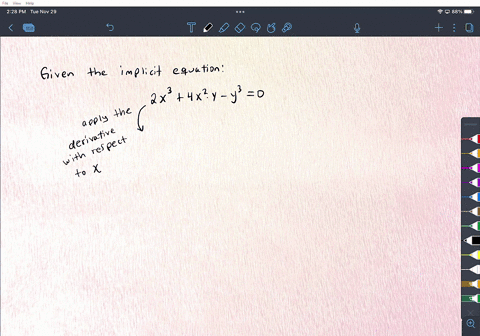 File View Help
2:28 PM Tue Nov 29
88%
Given the implicit equation:
2x³ + 4x²·y - y³ = 0
apply the
derivative
with respect
to x